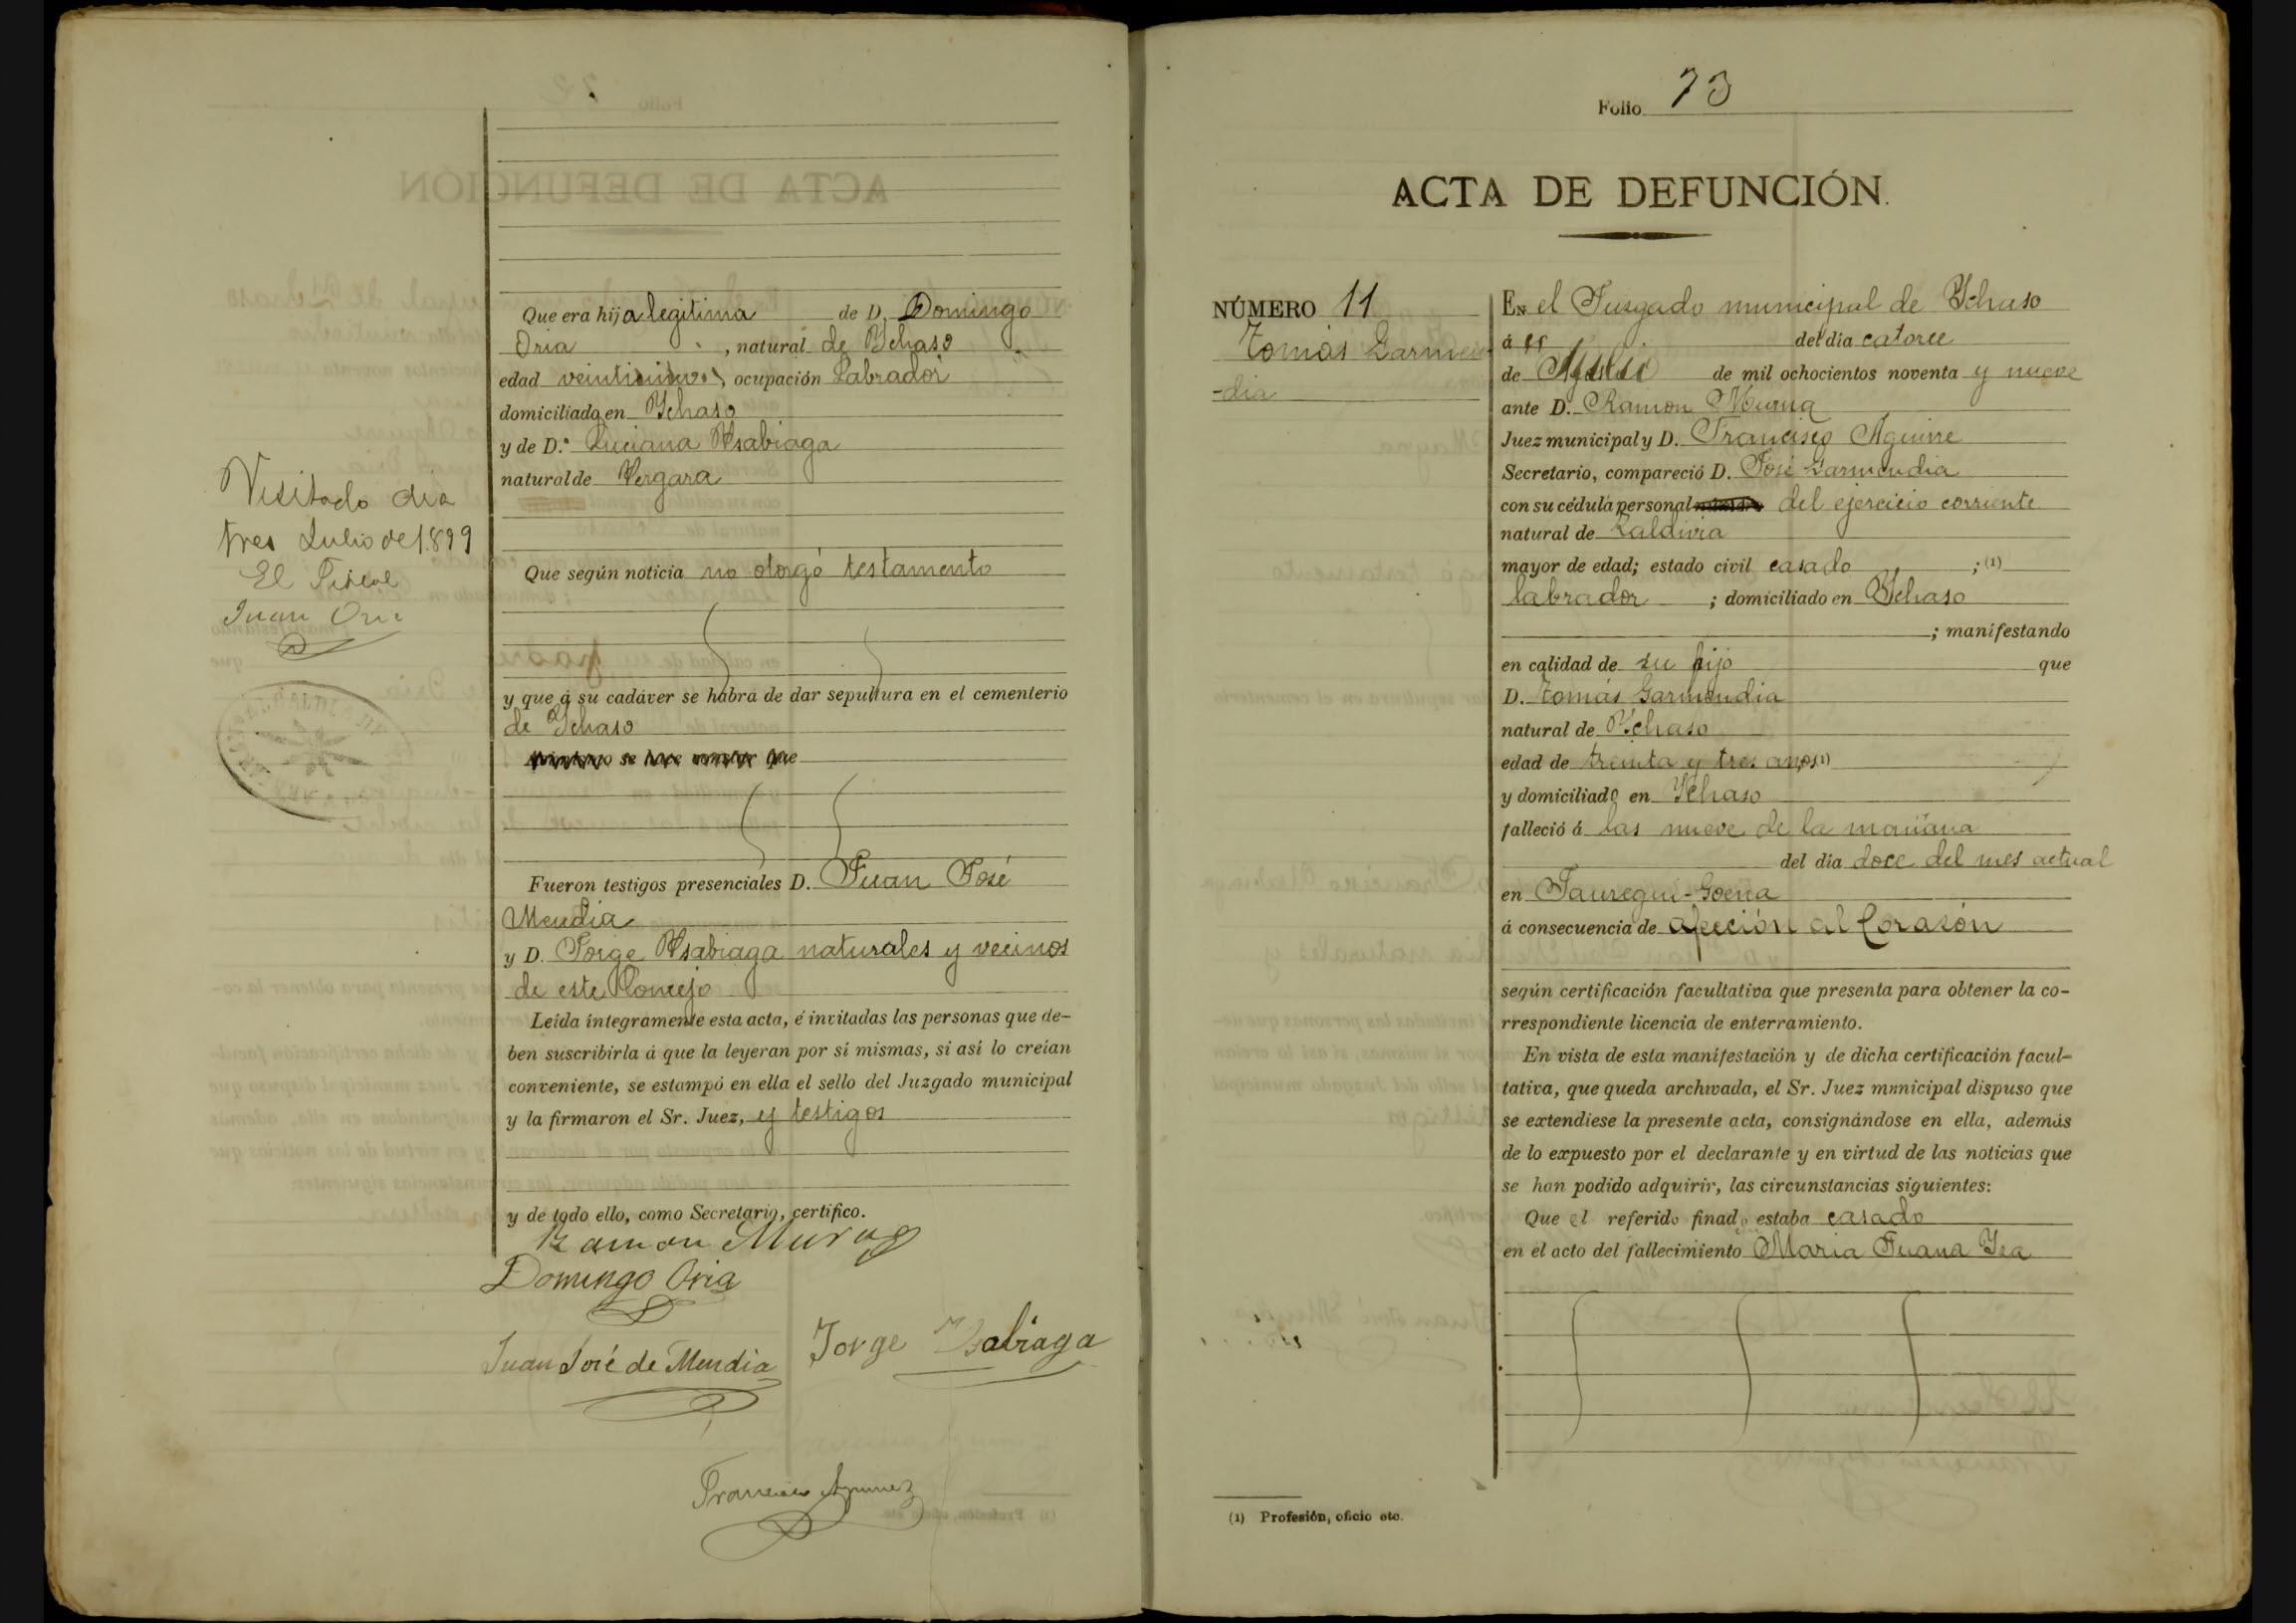 Que era hija legitima de D. Domingo
Oria, natural de Ychaso
edad , ocupación Labrador
domiciliado en Ychaso
y de D.ª Luciana Ysabiaga
natural de Vergara
Visitado dia
tres Julio de 1899
El Fiscal
Juan Oria
Que según noticia no otorgó testamento
y que á su cadáver se habrá de dar sepultura en el cementerio
de Ychaso
Asimismo se hace constar que
Fueron testigos presenciales D. Juan José
Mendia
y D. Jorge Ysabiaga naturales y vecinos
de este Concejo
Leída íntegramente esta acta, é invitadas las personas que de-
ben suscribirla á que la leyeran por sí mismas, si así lo creían
conveniente, se estampó en ella el sello del Juzgado municipal
y la firmaron el Sr. Juez, y testigos
y de todo ello, como Secretario, certifico.
Ramon Murua
Domingo Oria
Juan José de Mendia Jorge Ysabiaga
Francisco Aguirre
Folio 73
ACTA DE DEFUNCIÓN.
NÚMERO 11
Tomás Garmen
-dia
EN el Juzgado municipal de Ychaso
á del día catorce
de de mil ochocientos noventa y nueve
ante D. Ramon Murua
Juez municipal y D. Francisco Aguirre
Secretario, compareció D. José Garmendia
con su cédula personal del ejercicio corriente
natural de Zaldivia
mayor de edad; estado civil casado ; (1)
labrador ; domiciliado en Ychaso
; manifestando
en calidad de su hijo que
D. Tomás Garmendia
natural de Ychaso
edad de treinta y tres años (1)
y domiciliado en Ychaso
falleció á las nueve de la mañana
del día doce del mes actual
en Jauregui-Goena
á consecuencia de afección al Corazón
según certificación facultativa que presenta para obtener la co-
rrespondiente licencia de enterramiento.
En vista de esta manifestación y de dicha certificación facul-
tativa, que queda archivada, el Sr. Juez municipal dispuso que
se extendiese la presente acta, consignándose en ella, además
de lo expuesto por el declarante y en virtud de las noticias que
se han podido adquirir, las circunstancias siguientes:
Que el referido finado estaba casado
en el acto del fallecimiento con Maria Juana Yza
(1) Profesión, oficio etc.